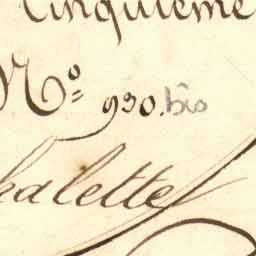 Cinquième
N° 930. bis
kalette